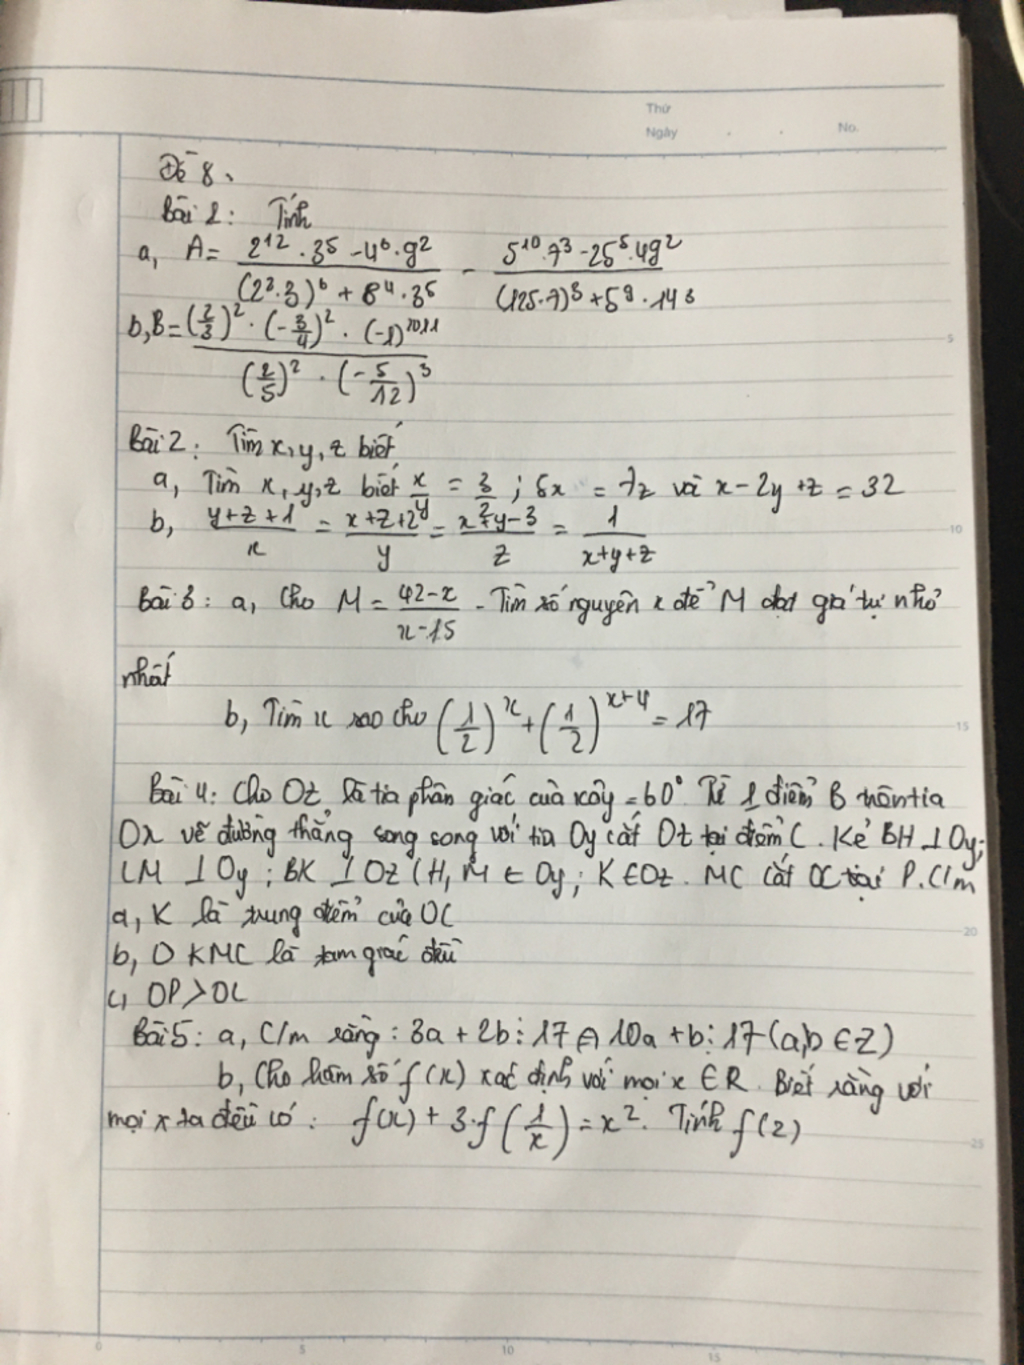 Thứ
Ngày . . No.
Đề 8.
Bài 1: Tính
a, A = (2^12 . 3^5 - 4^6 . 9^2) / ((2^2 . 3)^6 + 8^4 . 3^5) - (5^10 . 7^3 - 25^5 . 49^2) / ((125 . 7)^3 + 5^9 . 14^3)
b, B = ((2/3)^2 . (-3/4)^2 . (-1)^2011) / ((2/5)^2 . (-5/12)^3)
Bài 2: Tìm x, y, z biết
a, Tìm x, y, z biết x/y = 3/2 ; 5x = 7z và x - 2y + z = 32
b, (y+z+1)/x = (x+z+2)/y = (x+y-3)/z = 1/(x+y+z)
Bài 3: a, Cho M = (42-x)/(x-15) . Tìm số nguyên x để M đạt giá trị nhỏ
nhất
b, Tìm x sao cho (1/2)^x + (1/2)^(x+4) = 17
Bài 4: Cho Oz là tia phân giác của xOy = 60° Từ 1 điểm B trên tia
Ox vẽ đường thẳng song song với tia Oy cắt Oz tại điểm C. Kẻ BH ⊥ Oy;
CM ⊥ Oy ; BK ⊥ Oz (H, M ∈ Oy; K ∈ Oz. MC cắt OC tại P. C/m
a, K là trung điểm của OC
b, Δ KMC là tam giác đều
c, OP > OC
Bài 5: a, C/m rằng : 3a + 2b ⋮ 17 ⇔ 10a + b ⋮ 17 (a,b ∈ Z)
b, Cho hàm số f(x) xác định với mọi x ∈ R. Biết rằng với
mọi x ta đều có : f(x) + 3.f(1/x) = x^2. Tính f(2)
5
10
15
20
25
0 5 10 15